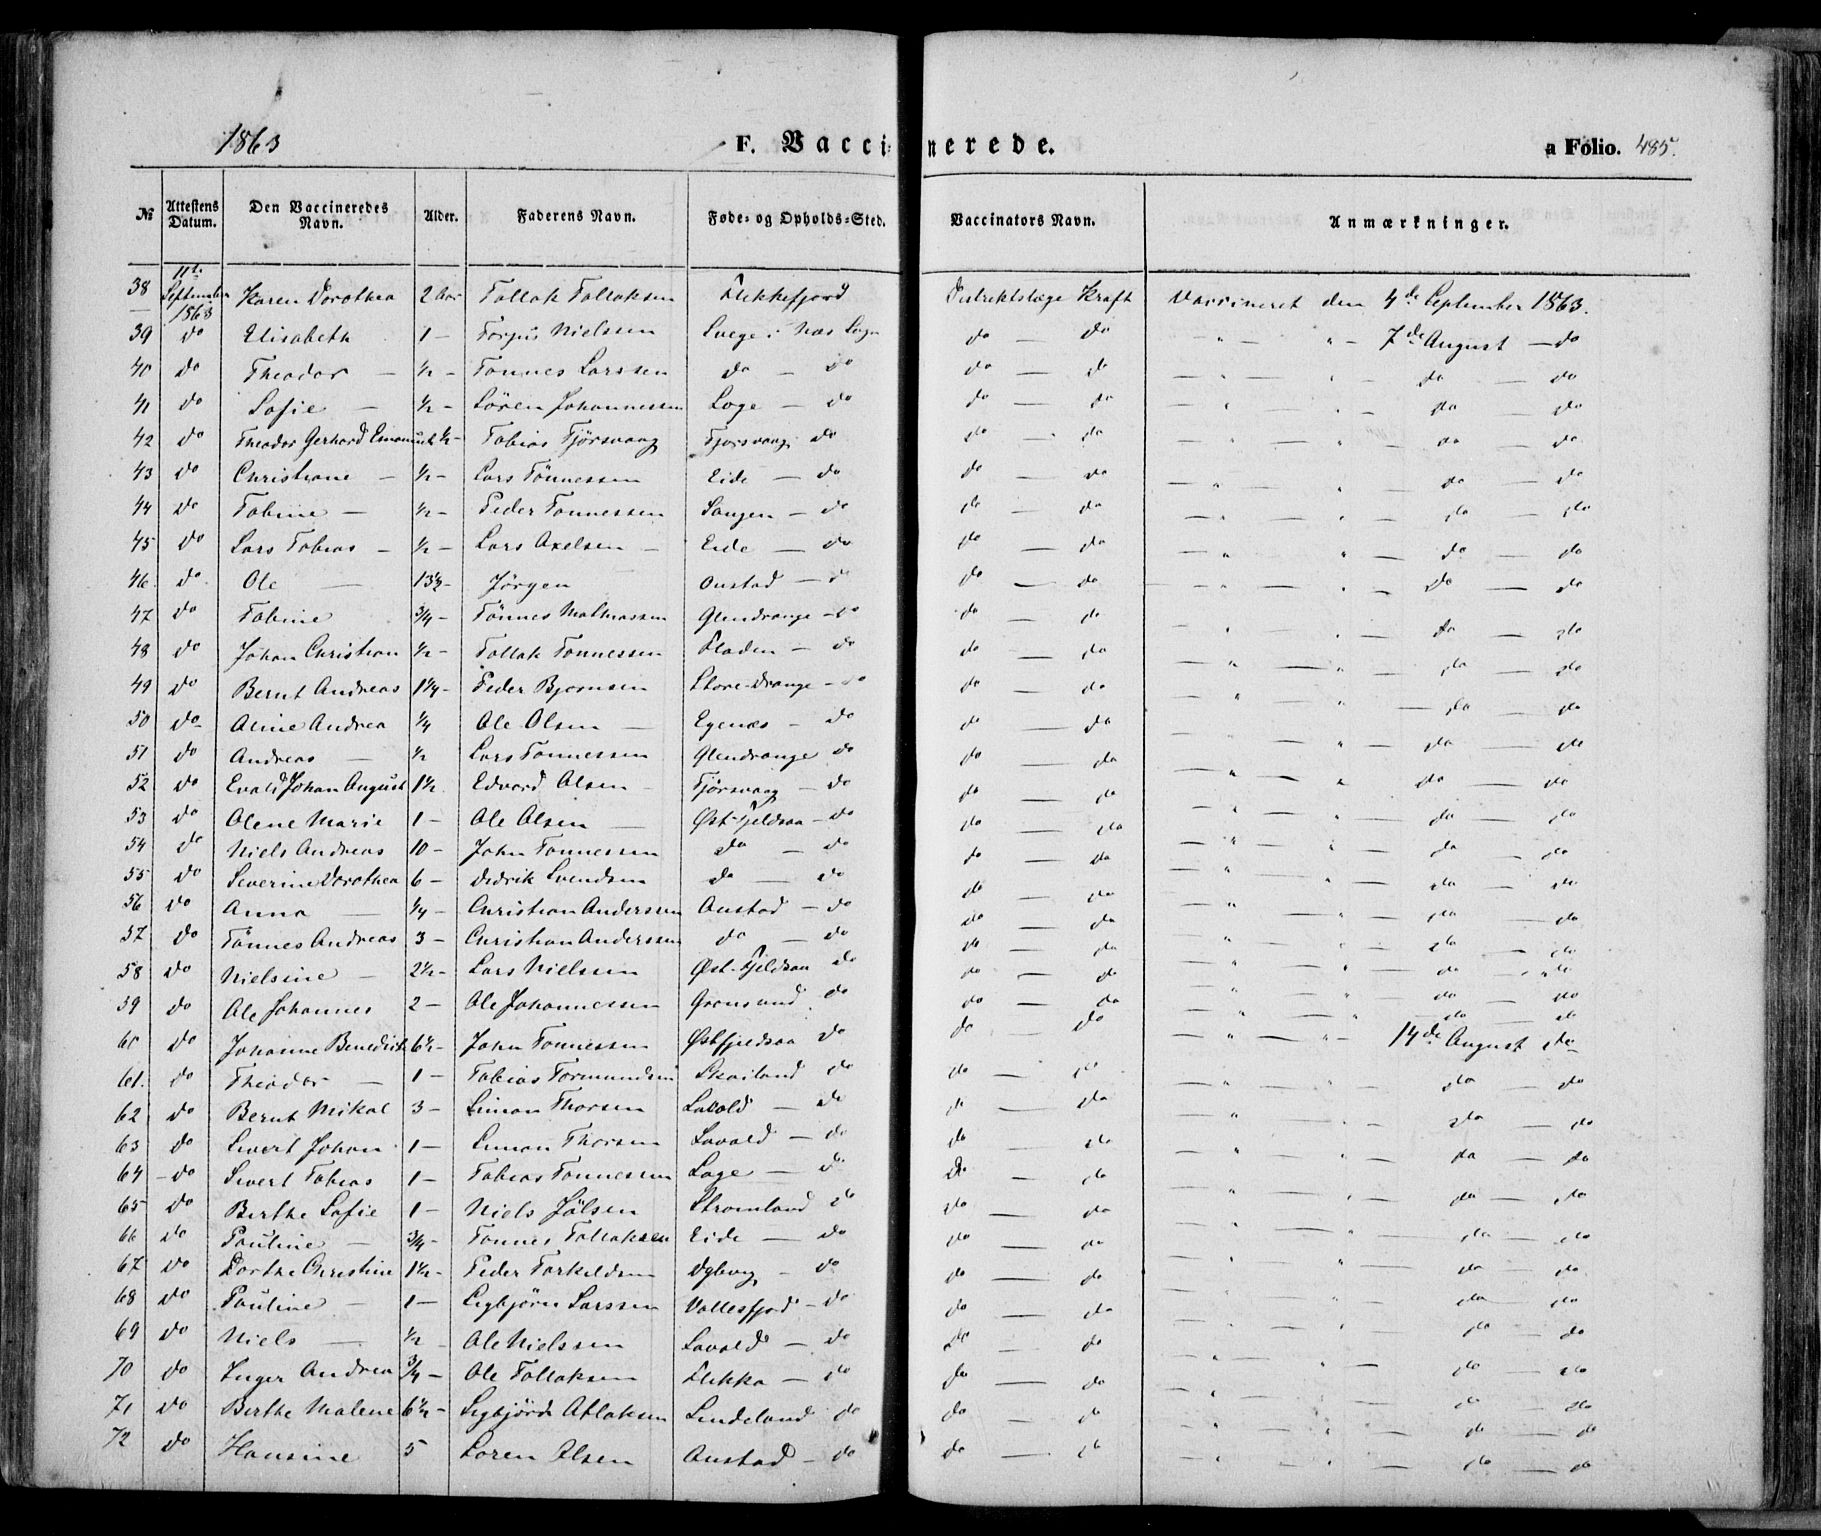 1863 F. Vaccinerede. a Folio. 485.
№ Attestens Datum. Den Vaccineredes Navn. Alder. Faderens Navn. Føde- og Opholds-Sted. Vaccinators Navn. Anmærkninger.
38 11te September 1863 Karen Dorothea 2 Aar Tollak Tollaksen Flekkefjord Distriktslæge Kraft Vaccineret den 4de September 1863.
39 do Elisabeth 1 — Torjus Nielssen i Næs Sogn do — do — " — " — 7de August — do
40 do Theodor — ½ — Tønnes Larssen do — do do — do — " — " — do — do
41 do Sofie — ½ — Sören Johannessen Loge — do do — do — " — " — do — do
42 do Theodor Gerhard Emanuel ½ — Tobias Fjörsvaag Fjorsvaag do do — do — " — " — do — do
43 do Christiane — ½ — Lars Tönnessen Eide — do do — do — " — " — do — do
44 do Tobine — ½ — Peder Tonnessen Songen — do do — do — " — " — do — do
45 do Lars Tobias — ½ — Lars Axelsen — Eide — do do — do — " — " — do — do
46 do Ole — 13½ — Jörgen Oustad — do do — do — " — " — do — do
47 do Tobine ¾ — Tönnes Mathiassen Glendrange — do do — do — " — " — do — do
48 do Johan Christian ½ — Tollak Tonnessen Fladen — do do — do — " — " — do — do
49 do Bernt Andreas 1¼ — Peder Bjornsen Store-Drange — do do — do — " — " — do — do
50 do Aline Andrea ¼ Ole Olsen — Egenæs — do do — do — " — " — do — do
51 do Andreas — ½ Lars Tonnessen Glendrange do do — do — " — " — do — do
52 do Evald Johan August 1½ Edvard Olsen — Fjörsvaag — do do — do — " — " — do — do
53 do Olene Marie 1 — Ole Olsen — Øst-Fjeldsaa — do do — do — " — " — do — do
54 do Niels Andreas 10 — John Tonnessen do — do do — do — " — " — do — do
55 do Severine Dorothea 6 — Didrik Svendsen do — do do — do — " — " — do — do
56 do Anna — ¼ — Christian Anderssen Oustad — do do — do — " — " — do — do
57 do Tönnes Andreas 3 — Christian Anderssen do — do do — do — " — " — do — do
58 do Nielsine — 2½ — Lars Nielssen Øst-Fjeldsaa do do — do — " — " — do — do
59 do Ole Johannes 2 — Ole Johannessen Gronsund do do — do — " — " — do — do
60 do Johanne Benedict 6½ — John Tonnessen Østfjeldsaa do do — do — " — " — 14de August do
61. do Theodor — 1 — Tobias Tormundsen Skailand do do — do — " — " — do — do
62 do Bernt Mikal 3 — Simon Thorsen Lavold — do do — do — " — " — do — do
63 do Sivert Johan 1 — Simon Thorsen Lavold — do do — do — " — " — do — do
64 do Sivert Tobias 1 — Tobias Tonnessen Loge — do do — do — " — " — do — do
65 do Birthe Sofie 1 — Niels Jölsen Stromland do do — do — " — " — do — do
66 do Pauline — ¾ — Tonnes Tollaksen Eide — do do — do — " — " — do — do
67 do Dorthe Christine 1½ — Peder Torkildsen Dybvig — do do — do — " — " — do — do
68 do Pauline — 1 — Sigbjörn Larssen Vollesfjord — do do — do — " — " — do — do
69 do Niels — ½ — Ole Nielssen Lavold — do do — do — " — " — do — do
70 do Inger Andrea ¾ — Ole Tollaksen Flikka — do do — do — " — " — do — do
71 do Birthe Malene 6½ — Sigbjörn Atlaksen Lindeland do do — do — " — " — do — do
72 do Hansine 5 Soren Olsen Oustad — do do — do — " — " — do — do